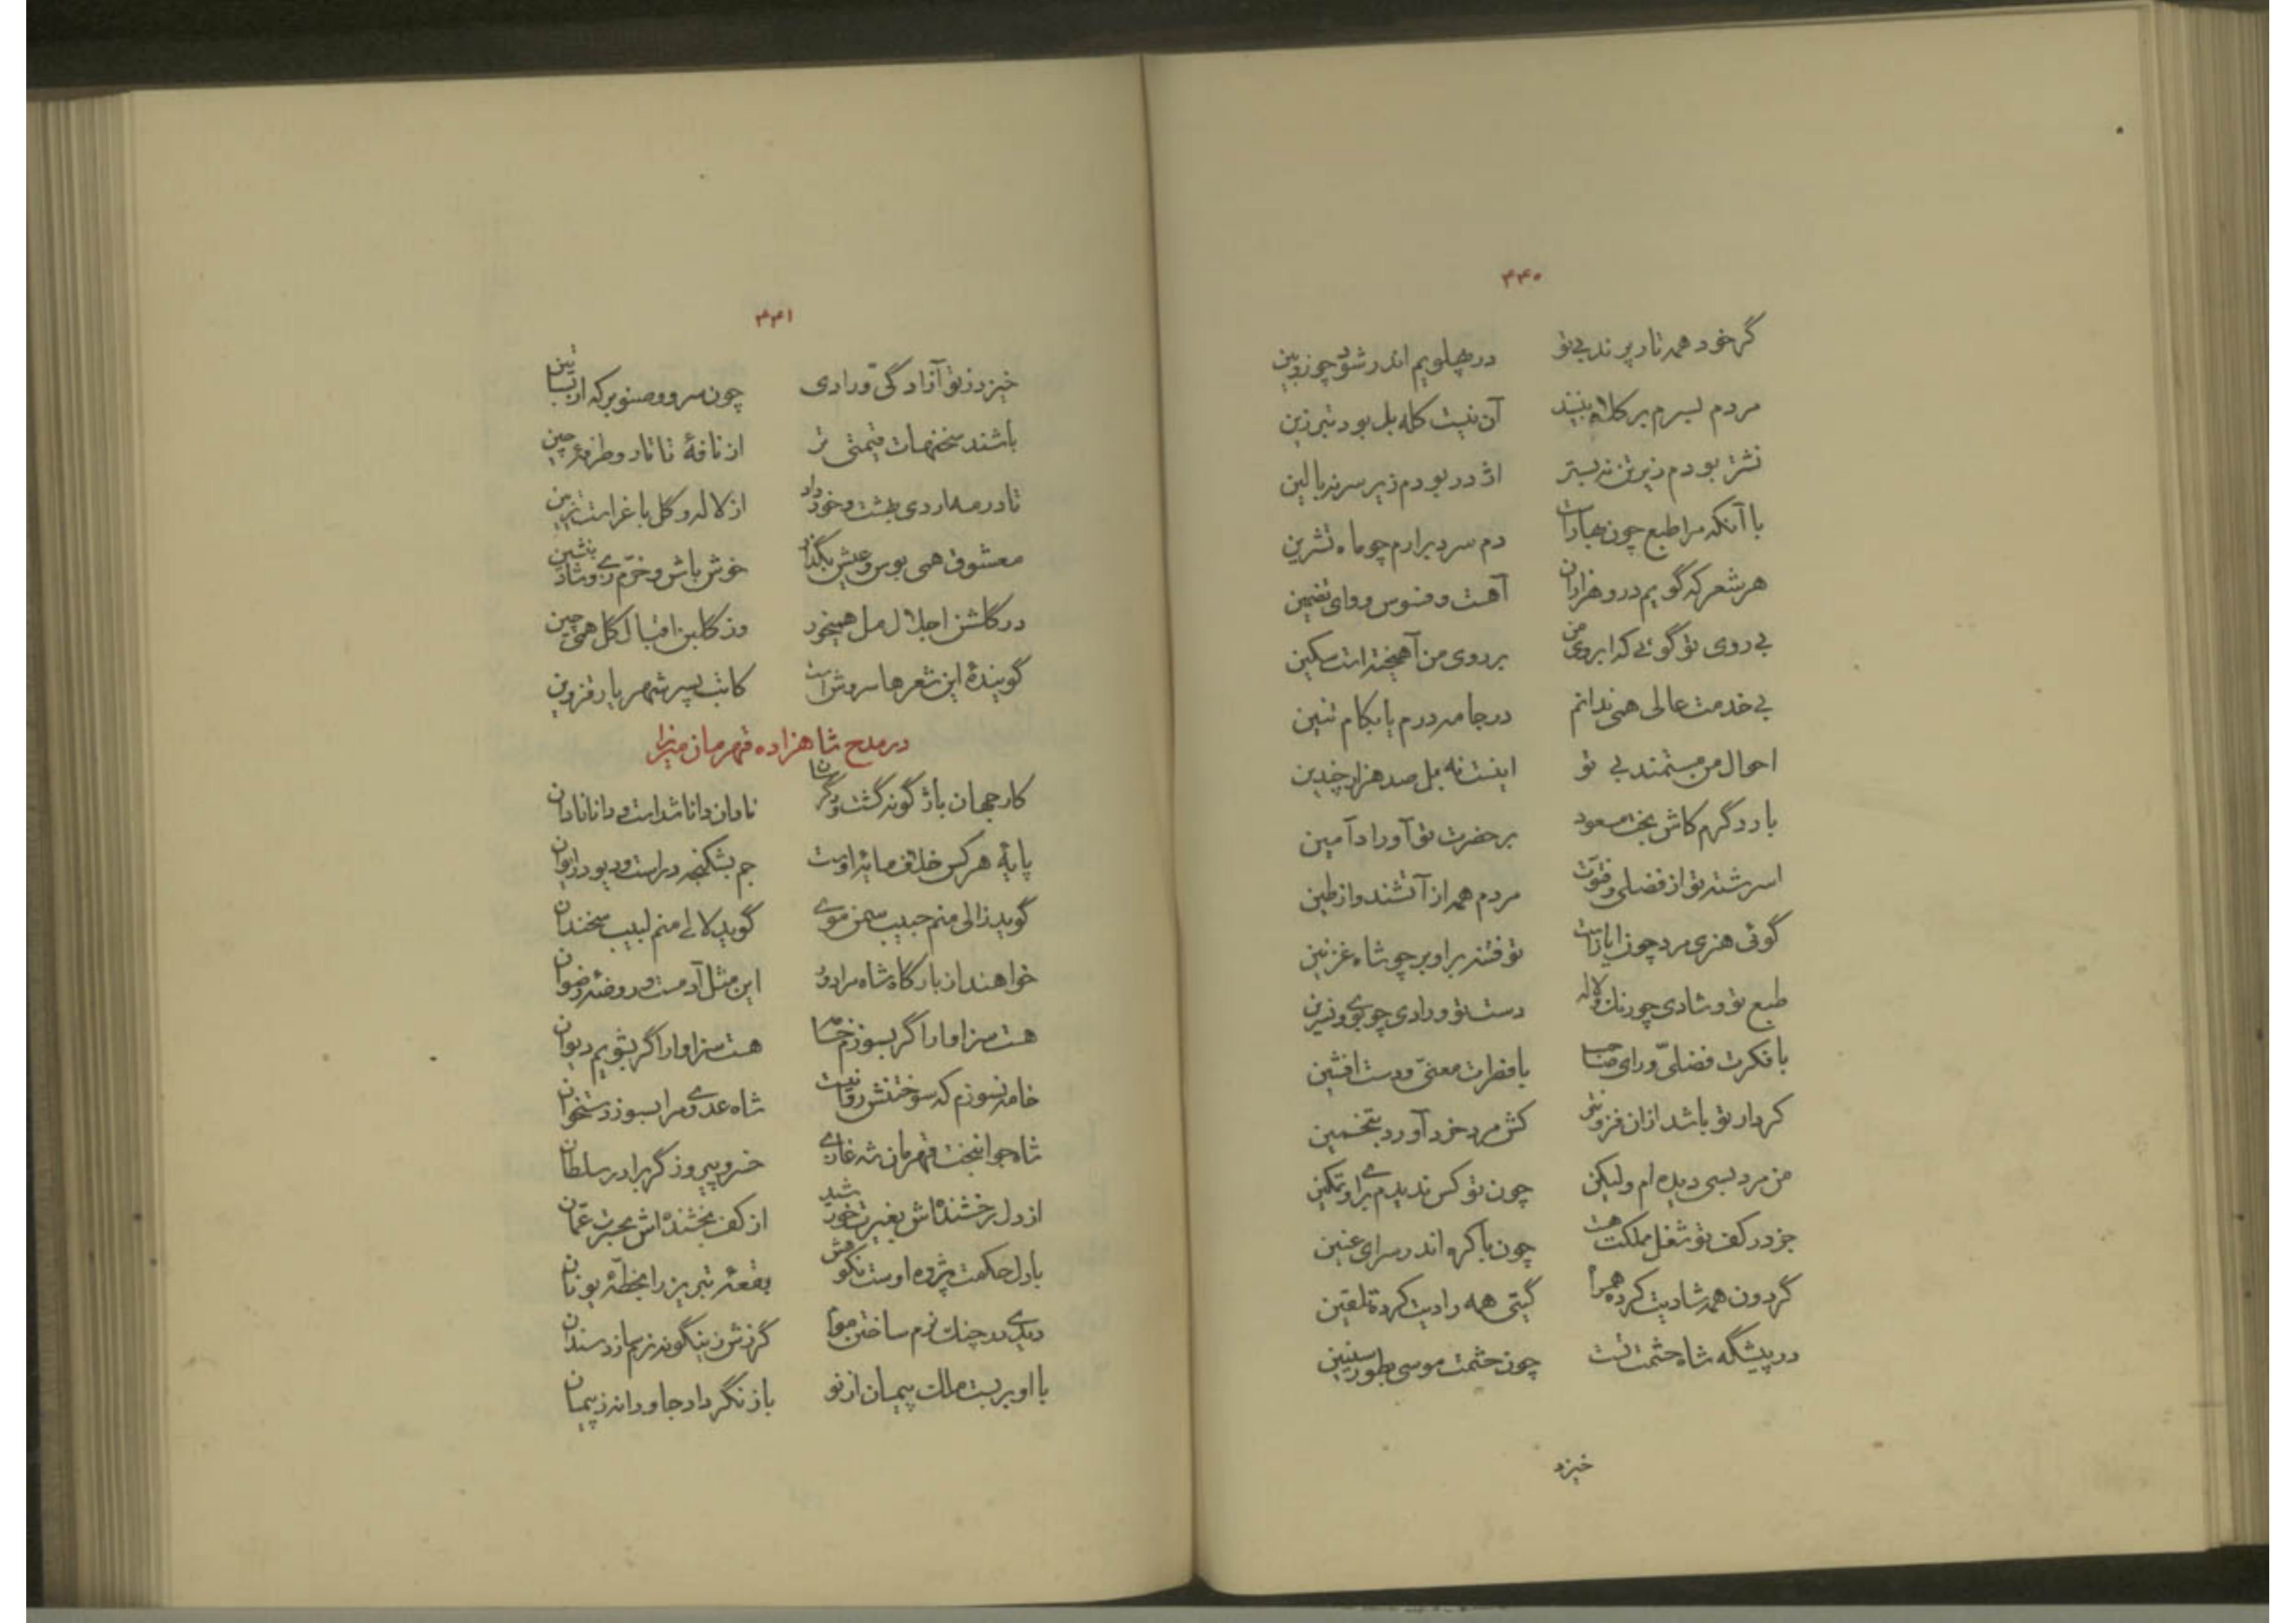 ۴۴۰
گر خود همه تار پرند بی تو در پهلویم اندر شود چو زوبین
مردم بسرم بر کلاه بینند آن نیست کله بل بود تبرزین
نشتر بودم زیر تن نه بستر اژدر بودم زیر سر نه بالین
با آنکه مرا طبع چون بهارست دم سرد برارم چو ماه تشرین
هر شعر که گویم درو هزاران آهست و فسوس و وای تضمین
بی روی تو گوئی که ابروی من بر روی من آهیخته است سکین
بی خدمت عالی همی ندانم در جامه درم یا بکام تنین
احوال من مستمند بی تو اینست نه بل صد هزار چندین
بار دگرم کاش بخت مسعود بر حضرت تو آوراد آمین
اسرشته تو از فضلی و فتوت مردم همه از آتشند و از طین
گوئی هنری مرد چون ایازست تو فتنه براو بر چو شاه غزنین
طبع تو و شادی چو رنک و لاله دست تو و رادی چو بوی و نسرین
با فکرت فضلی و رای صاحب با فطرت معنی و دست افشین
کردار تو باشد ازان فزونتر کش مرد خرد آورد بتخمین
من مرد بسی دیده ام ولیکن چون تو کس ندیدم برای و تمکین
جز در کف تو شغل مملکت هست چون باکره اندر سرای عنین
گردون همه شادیت کرده همرا گیتی همه رادیت کرده تلقین
در پیشگه شاه حشمت تست چون حشمت موسی بطور سینین
خیزد
۴۴۱
خیزد ز تو آزادگی و رادی چون سرو و صنوبر که از بساتین
باشند سخنهات قیمتی تر از نافهٔ تاتار و طرفهٔ چین
تا در مه اردی بهشت و خورداد از لاله و گل باغراست تزیین
معشوق همی بوس و عیش بگذار خوش باش و خرّم زی و شاد بنشین
در گلشن اجلال مل همیخور وز گلبن اقبال گل همی چین
گویندهٔ این شعرها سروش است کاتب پسر شهریار قزوین
در مدح شاهزاده قهرمان میرزا
کار جهان باژگونه گشت و دگرسان نادان دانا شداست و دانا نادان
پایهٔ هر کس خلاف مایهٔ اوست جم بشکنجه دراست و دیو در ایوان
گوید زالی منم حبیب سمن موی گوید لالی منم لبیب سخندان
خواهند از بارگاه شاه مرا دور این مثل آدمست و روضهٔ رضوان
هست سزاوار اگر بسوزم خامه هست سزاوار اگر بشویم دیوان
خامه نسوزم که سوختنش روا نیست شاه عدوی مرا بسوزد ستخوان
شاه جوانبخت قهرمان شه غازی خسرو پیروزگر برادر سلطان
از دل رخشنده اش بغیرت خورشید از کف بخشنده اش بحیرت عمّان
با دل حکمت پژوه اوست نکوهش بقعهٔ تبریز را بخطّهٔ یونان
دیدی در چنک نرم ساختن موم گرزش زینگونه نرم سازد سندان
با او بربست ملک پیمان از نو باز نگردد جاودانه ز پیمان